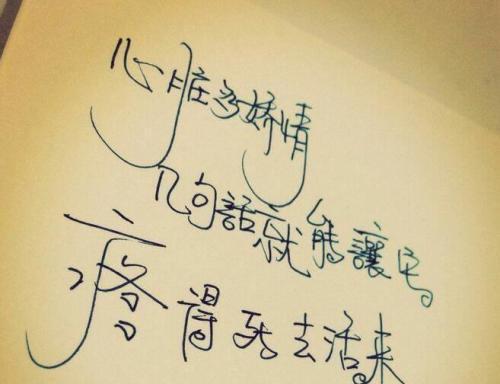 心脏多娇情
几句話就能讓它
疼得死去活来